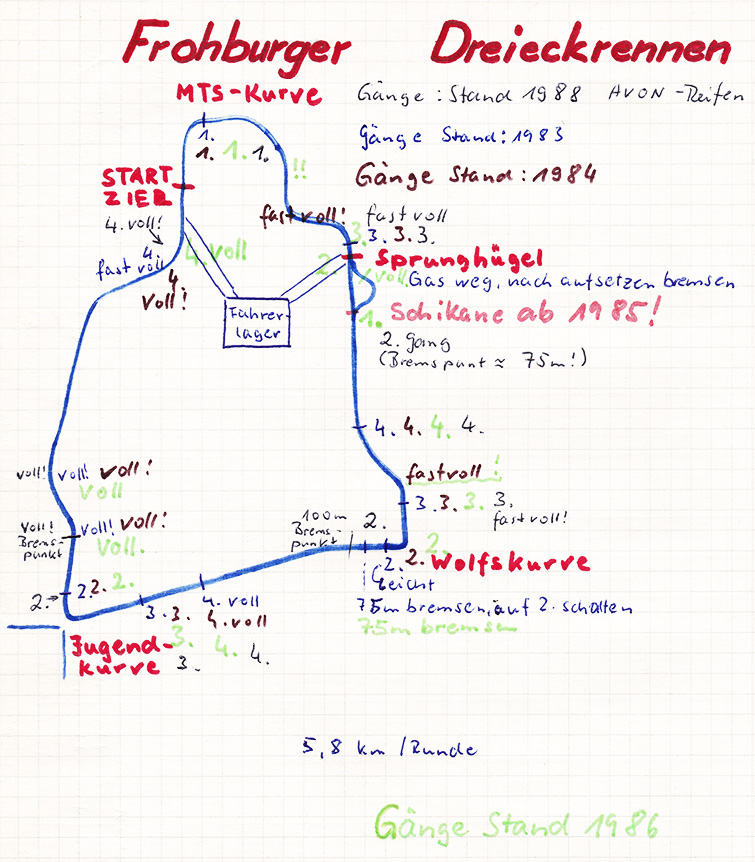 Frohburger Dreieckrennen
MTS-Kurve
Gänge: Stand 1988 AVON-Reifen
Gänge Stand: 1983
Gänge Stand: 1984
1.
1. 1. 1.
!!
START
ZIEL
fast voll! fast voll
4. voll!
3. 3. 3. 3.
4.
fast voll
4. voll
2.
Sprunghügel
voll
Gas weg, nach aufsetzen bremsen
4.
voll!
Fahrer-
lager
1. Schikane ab 1985!
2. gang
(Bremspunt ≈ 75m!)
4. 4. 4. 4.
voll! voll! voll!
voll
fastvoll!
3. 3. 3. 3.
fast voll!
voll!
Brems-
punkt
voll! voll!
voll.
100m
Brems-
punkt
2.
2. 2. 2.
Wolfskurve
leicht
2. 2. 2. 2.
3. 3.
4. voll
4. voll
75m bremsen, auf 2. schalten
75m bremsen
Jugend-
kurve
3.
3.
4. 4.
5,8 km/Runde
Gänge Stand 1986